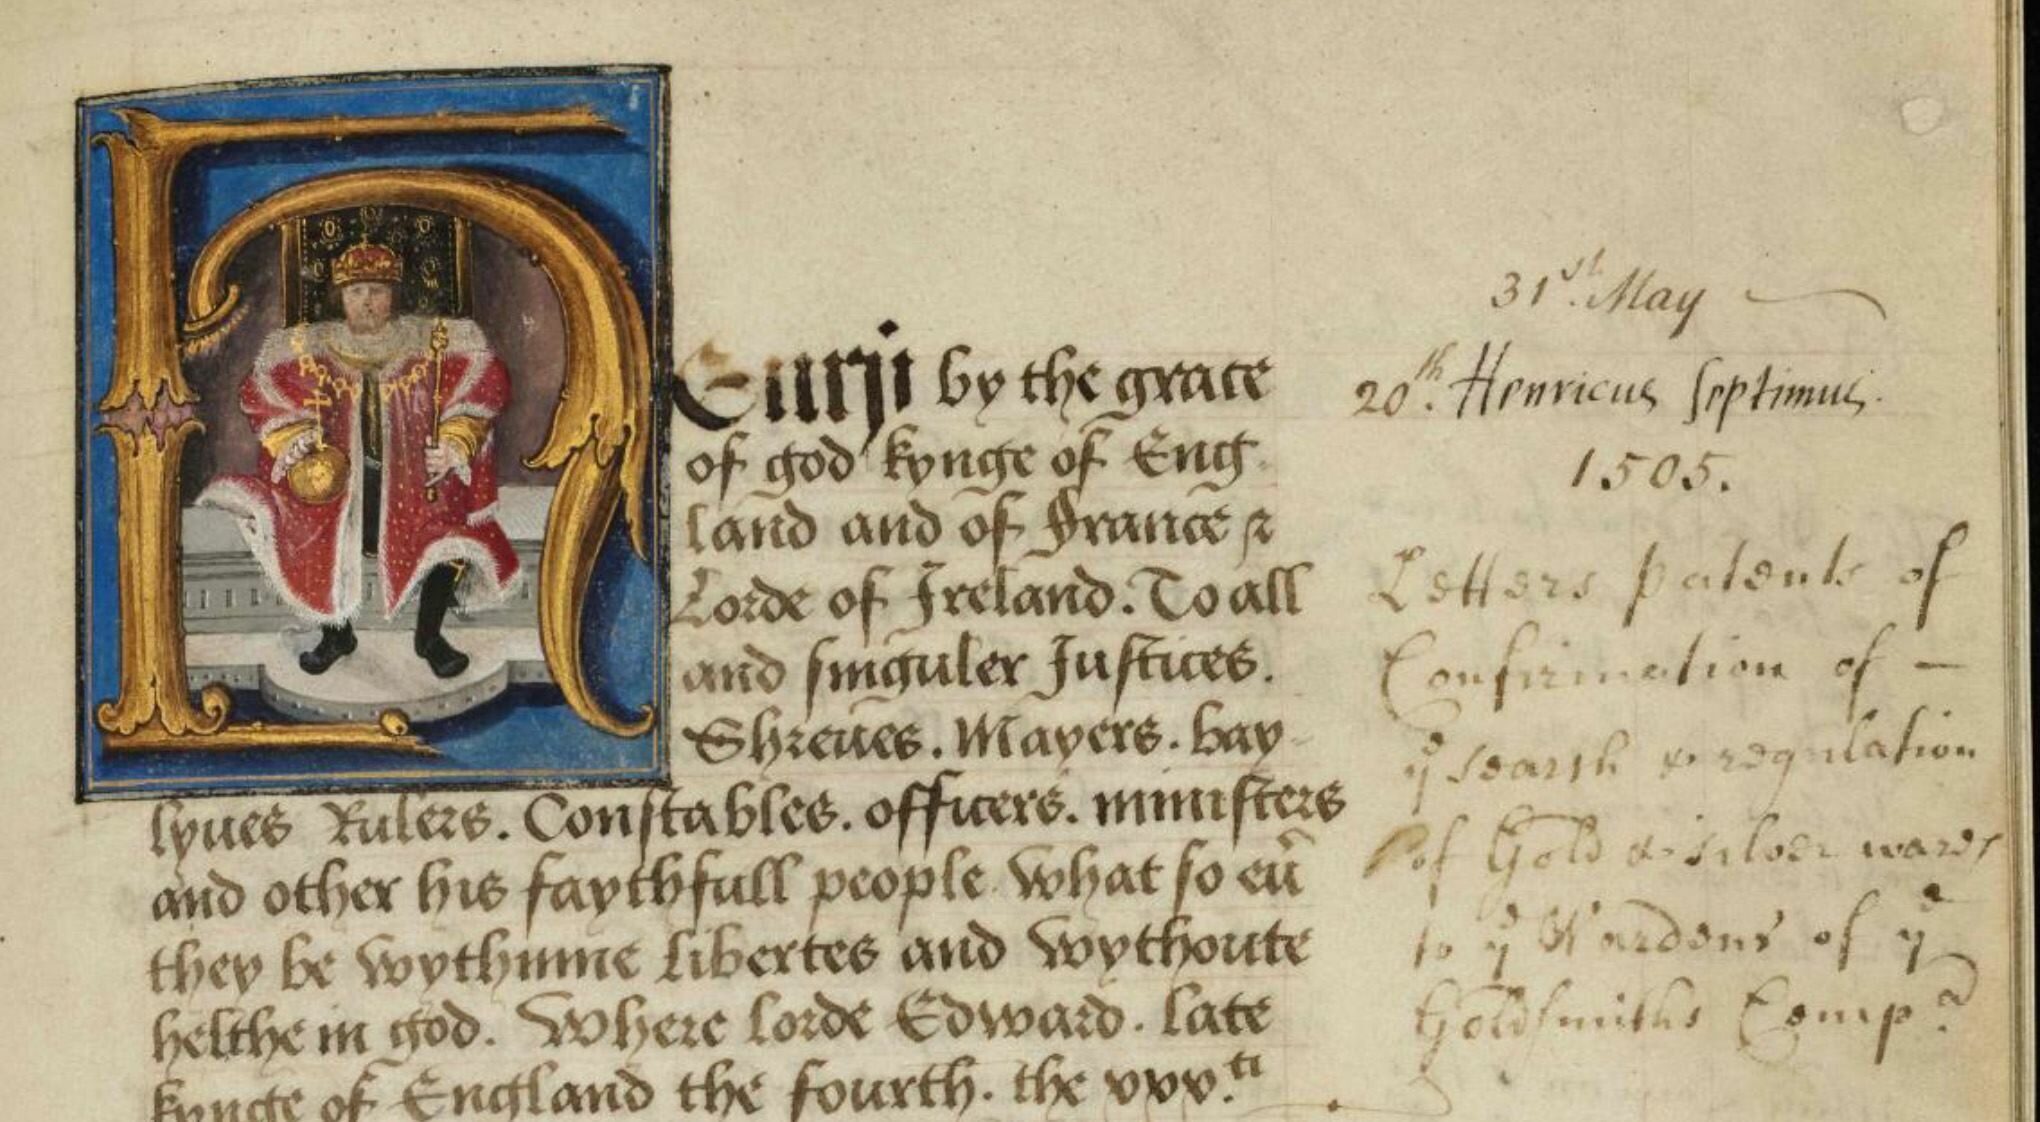 Henry by the grace
of god kynge of Eng
land and of France &
Lorde of Ireland. To all
and singuler Justices.
Shreues. Mayers. bay-
lyues Rulers. Constables. officers. ministers
and other his faythfull people what so eũ
they be wythinne libertes and wythoute
helthe in god. Where lorde Edward. late
kynge of England the fourth. the xxx.ti
31st. May
20th. Henricus Septimus.
1505.
Letters patents of
Confirmation of -
ye search & regulation
of Gold & silver wares
to ye Wardens of ye
Goldsmiths Compa.